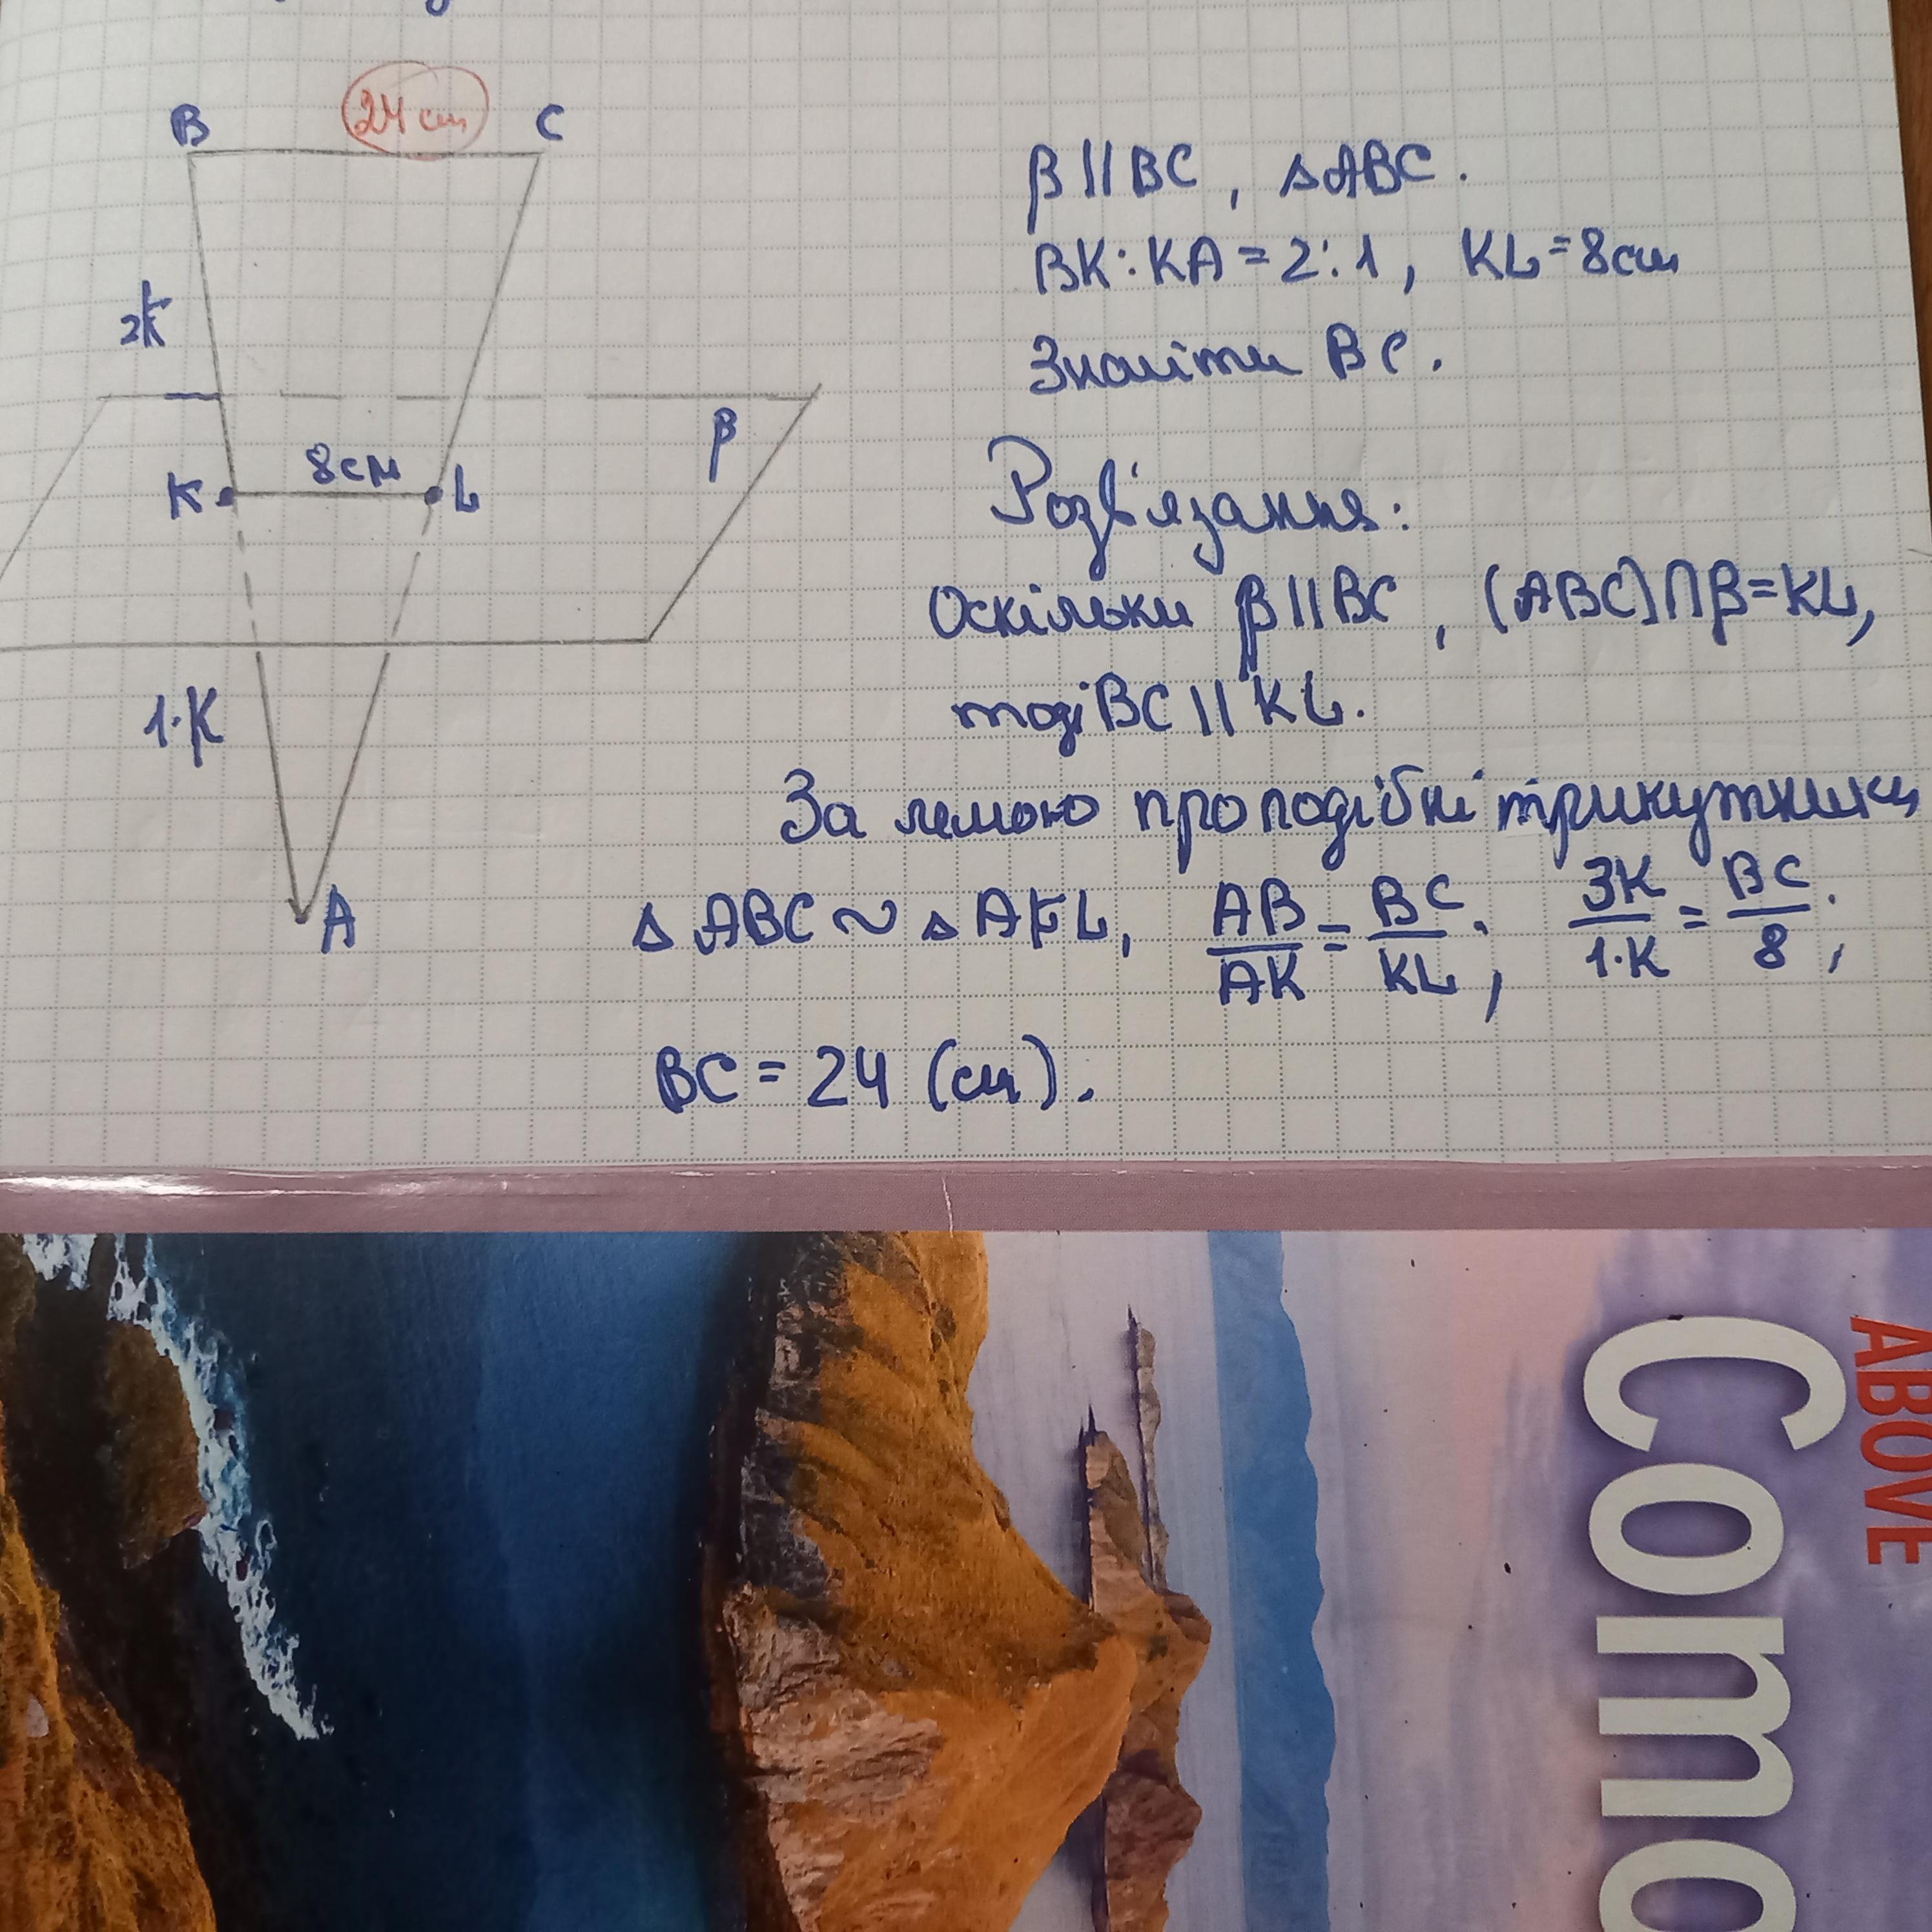 24 см
B
C
β || BC, △ABC.
BK:KA=2:1, KL=8см
2k
Знайти BC.
β
8см
K
L
Розв'язання:
Оскільки β||BC, (ABC)∩β=KL,
тоді BC || KL.
1·K
За лемою про подібні трикутники
△ ABC ~ △ AKL, AB/AK = BC/KL; 3K/1·K = BC/8;
A
BC = 24 (см).
ABOVE
Como